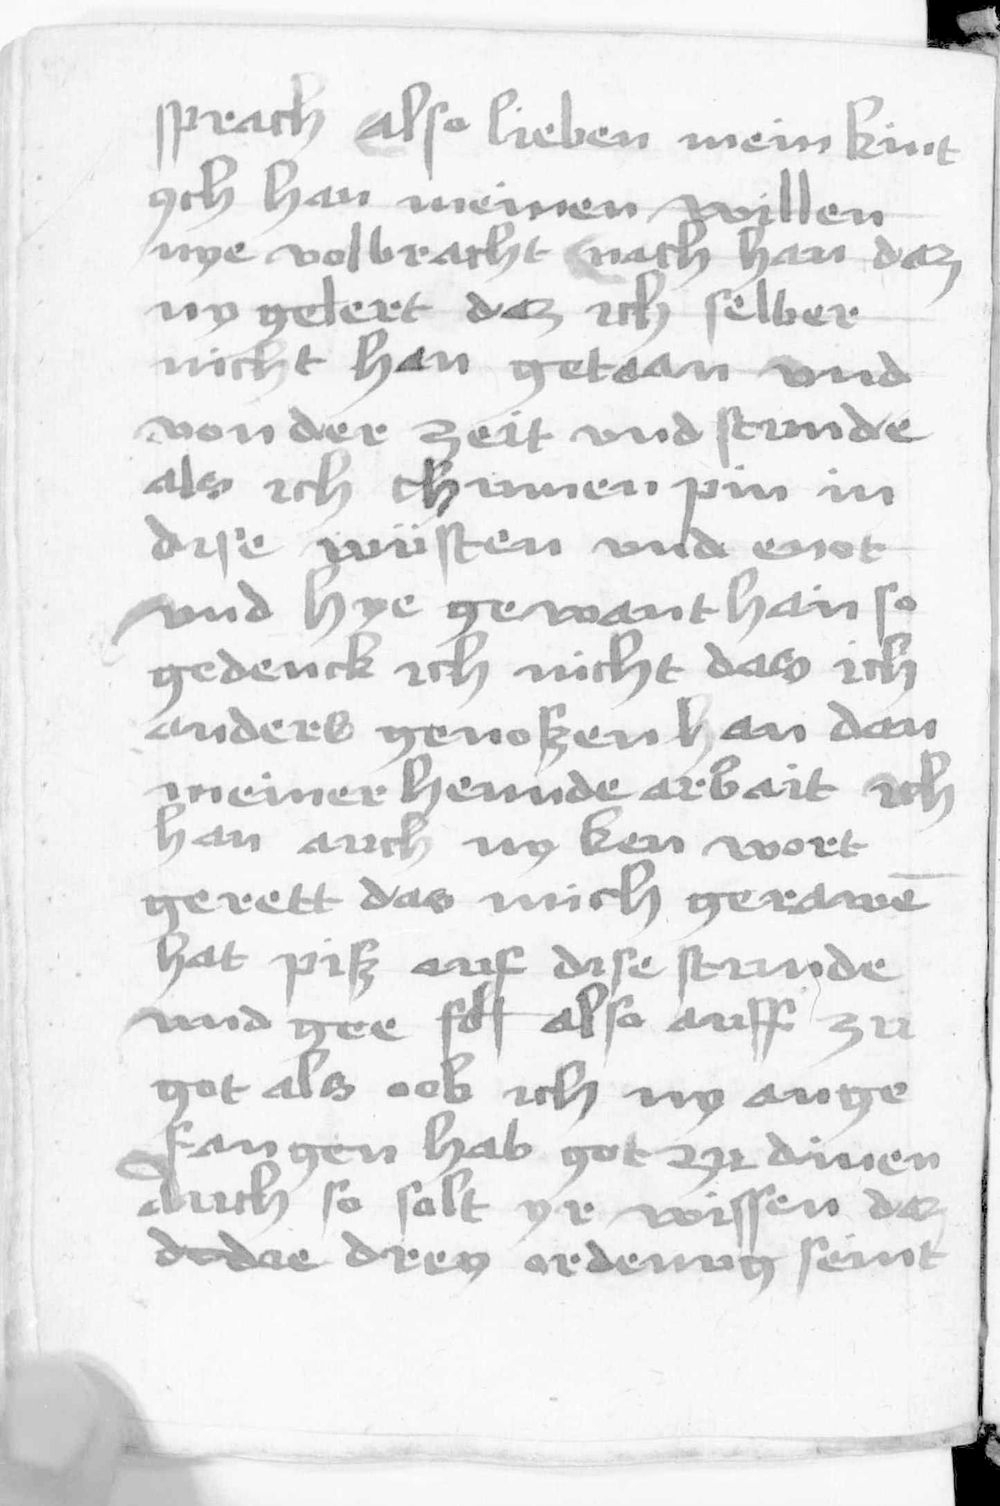 sprach also lieben mein kint
ych han meinen willen
nye volbracht nach han daz
ny gelert daz ich selber
nicht han getaan vnd
von der zeit vnd stunde
als ich chumen pin in
dise wüsten vnd enot
vnd hye gewant han so
gedenck ich nicht das ich
anders genoßzen han dan
meiner hennde arbait ich
han auch ny ken wort
gerett das mich gerawē
hat piß auf dise stunde
vnd gee also auff zu
got als oob ich ny ange
fangen hab got zu dinen
auch so solt yr wissen daz
die drey ordenung seint